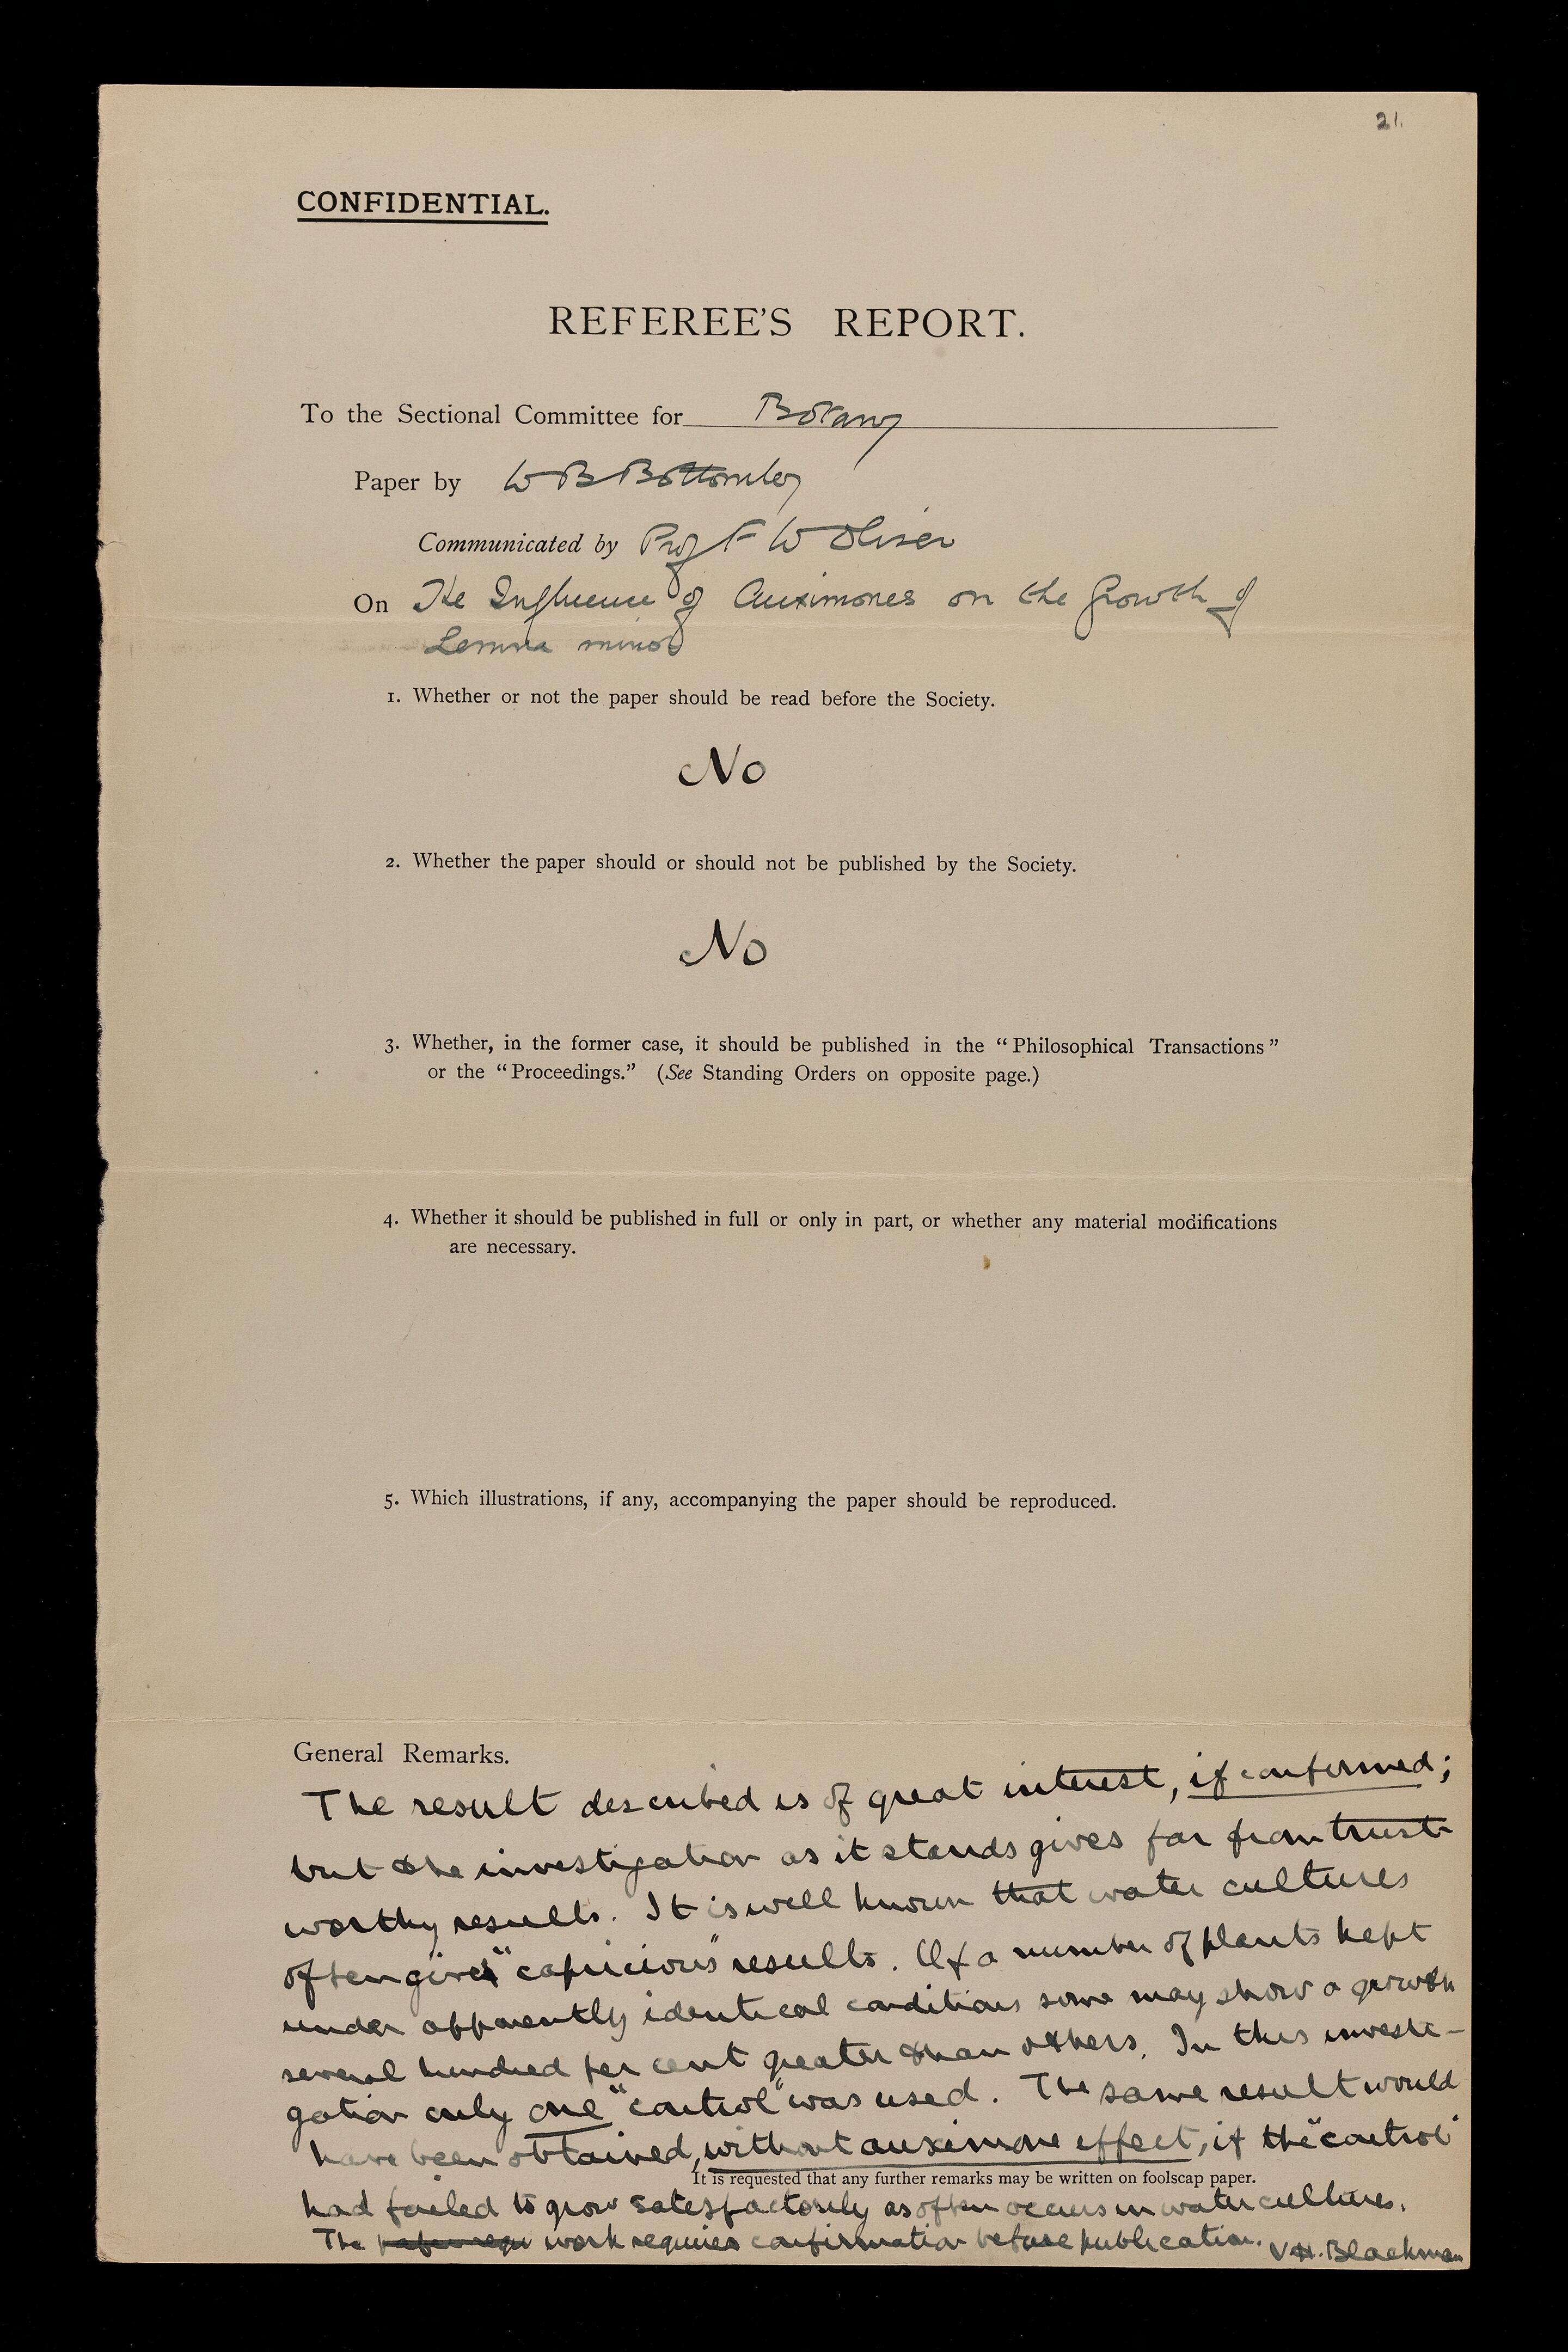 21.
CONFIDENTIAL.
REFEREE'S REPORT.
To the Sectional Committee for Botany
Paper by W B Bottomley
Communicated by Prof F W Oliver
On The Influence of Auximones on the Growth of
Lemna minor
1. Whether or not the paper should be read before the Society.
No
2. Whether the paper should or should not be published by the Society.
No
3. Whether, in the former case, it should be published in the “Philosophical Transactions”
or the “Proceedings.” (See Standing Orders on opposite page.)
4. Whether it should be published in full or only in part, or whether any material modifications
are necessary.
5. Which illustrations, if any, accompanying the paper should be reproduced.
General Remarks.
The result described is of great interest, if confirmed;
but the investigation as it stands gives far from trust-
worthy results. It is well known that water cultures
often give "capricious" results. Of a number of plants kept
under apparently identical conditions some may show a growth
several hundred per cent greater than others. In this investi-
gation only one "control" was used. The same result would
have been obtained, without auximone effect, if the "control"
It is requested that any further remarks may be written on foolscap paper.
had failed to grow satisfactorily as often occurs in water cultures.
The paper requ work requires confirmation before publication. V.H. Blackman